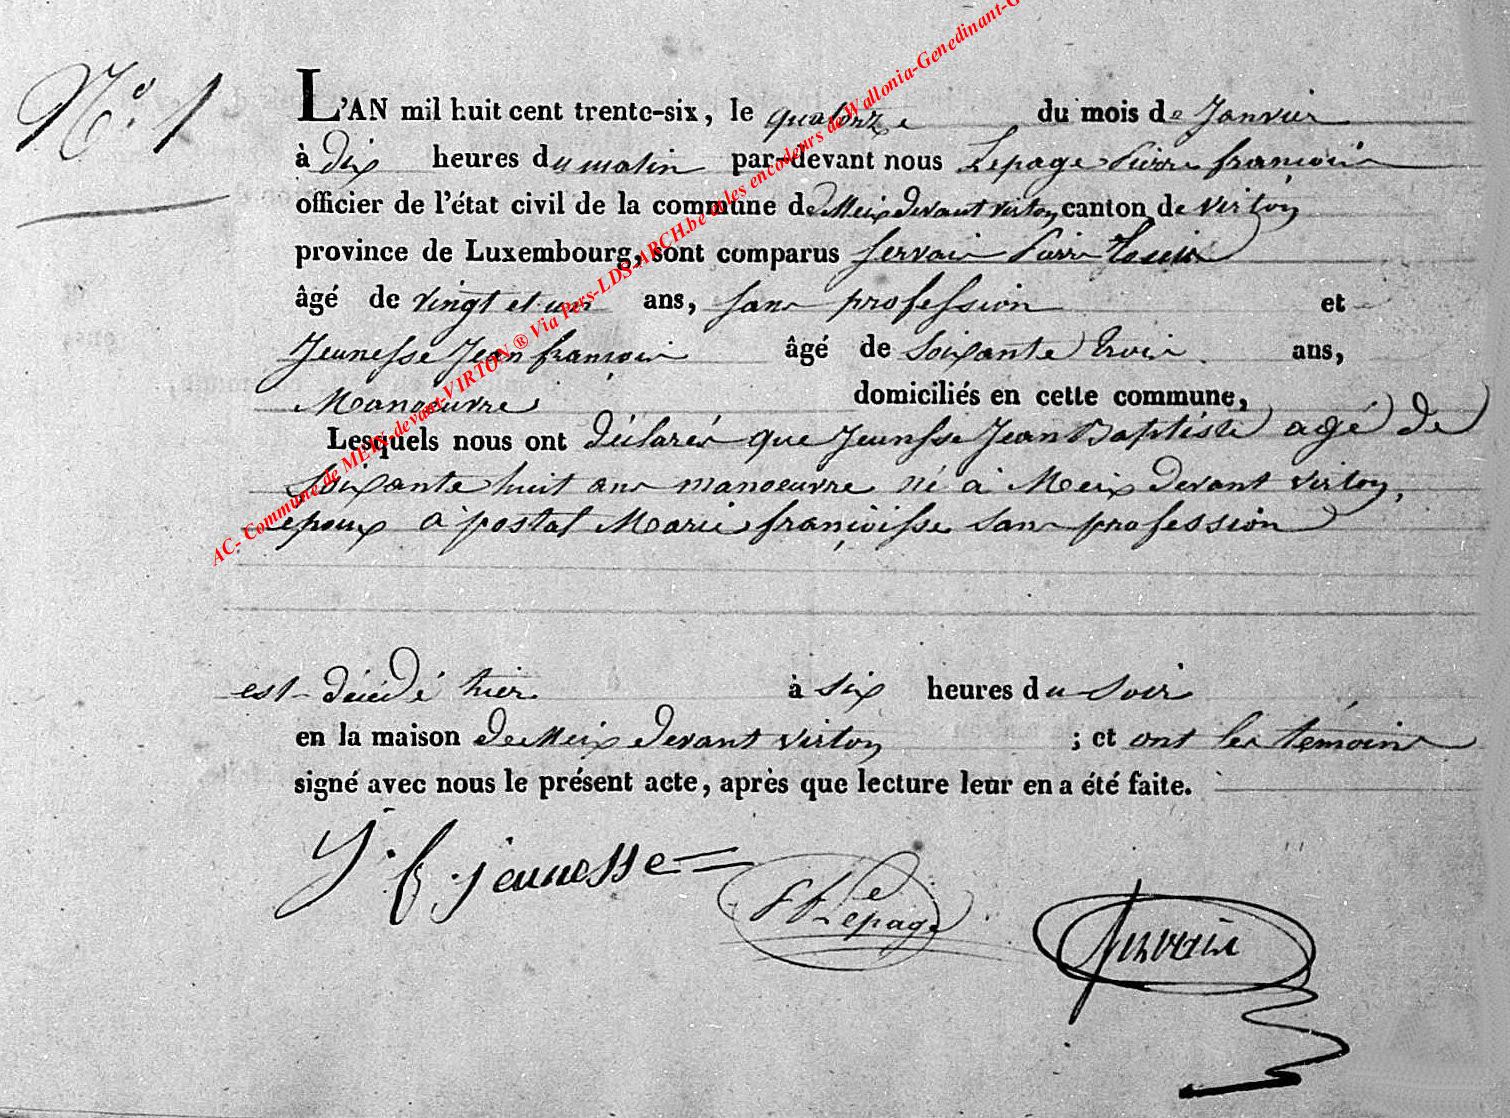 N.o 1
L'AN mil huit cent trente-six, le quatorze du mois de Janvier
à dix heures du matin par-devant nous Lepage Pierre françois
officier de l'état civil de la commune de Meix devant virton canton de virton
province de Luxembourg, sont comparus Servais Pierre Louis
âgé de vingt et un ans, sans profession et
Jeunesse Jean françois âgé de Soixante trois ans,
Manoeuvre domiciliés en cette commune,
Lesquels nous ont déclarés que Jeunesse Jean Baptiste agé de
Soixante huit ans manoeuvre né à Meix devant virton,
epoux a postal Marie françoisse sans profession
est décédé hier à six heures du soir
en la maison de Meix devant virton ; et ont les témoins
signé avec nous le présent acte, après que lecture leur en a été faite.
J. f. jeunesse
P f Lepage
Servais
AC- Commune de MEIX-devant-VIRTON ® Via Pers-LDS-ARCH.be & les encodeurs de Wallonia-Genedinant-G